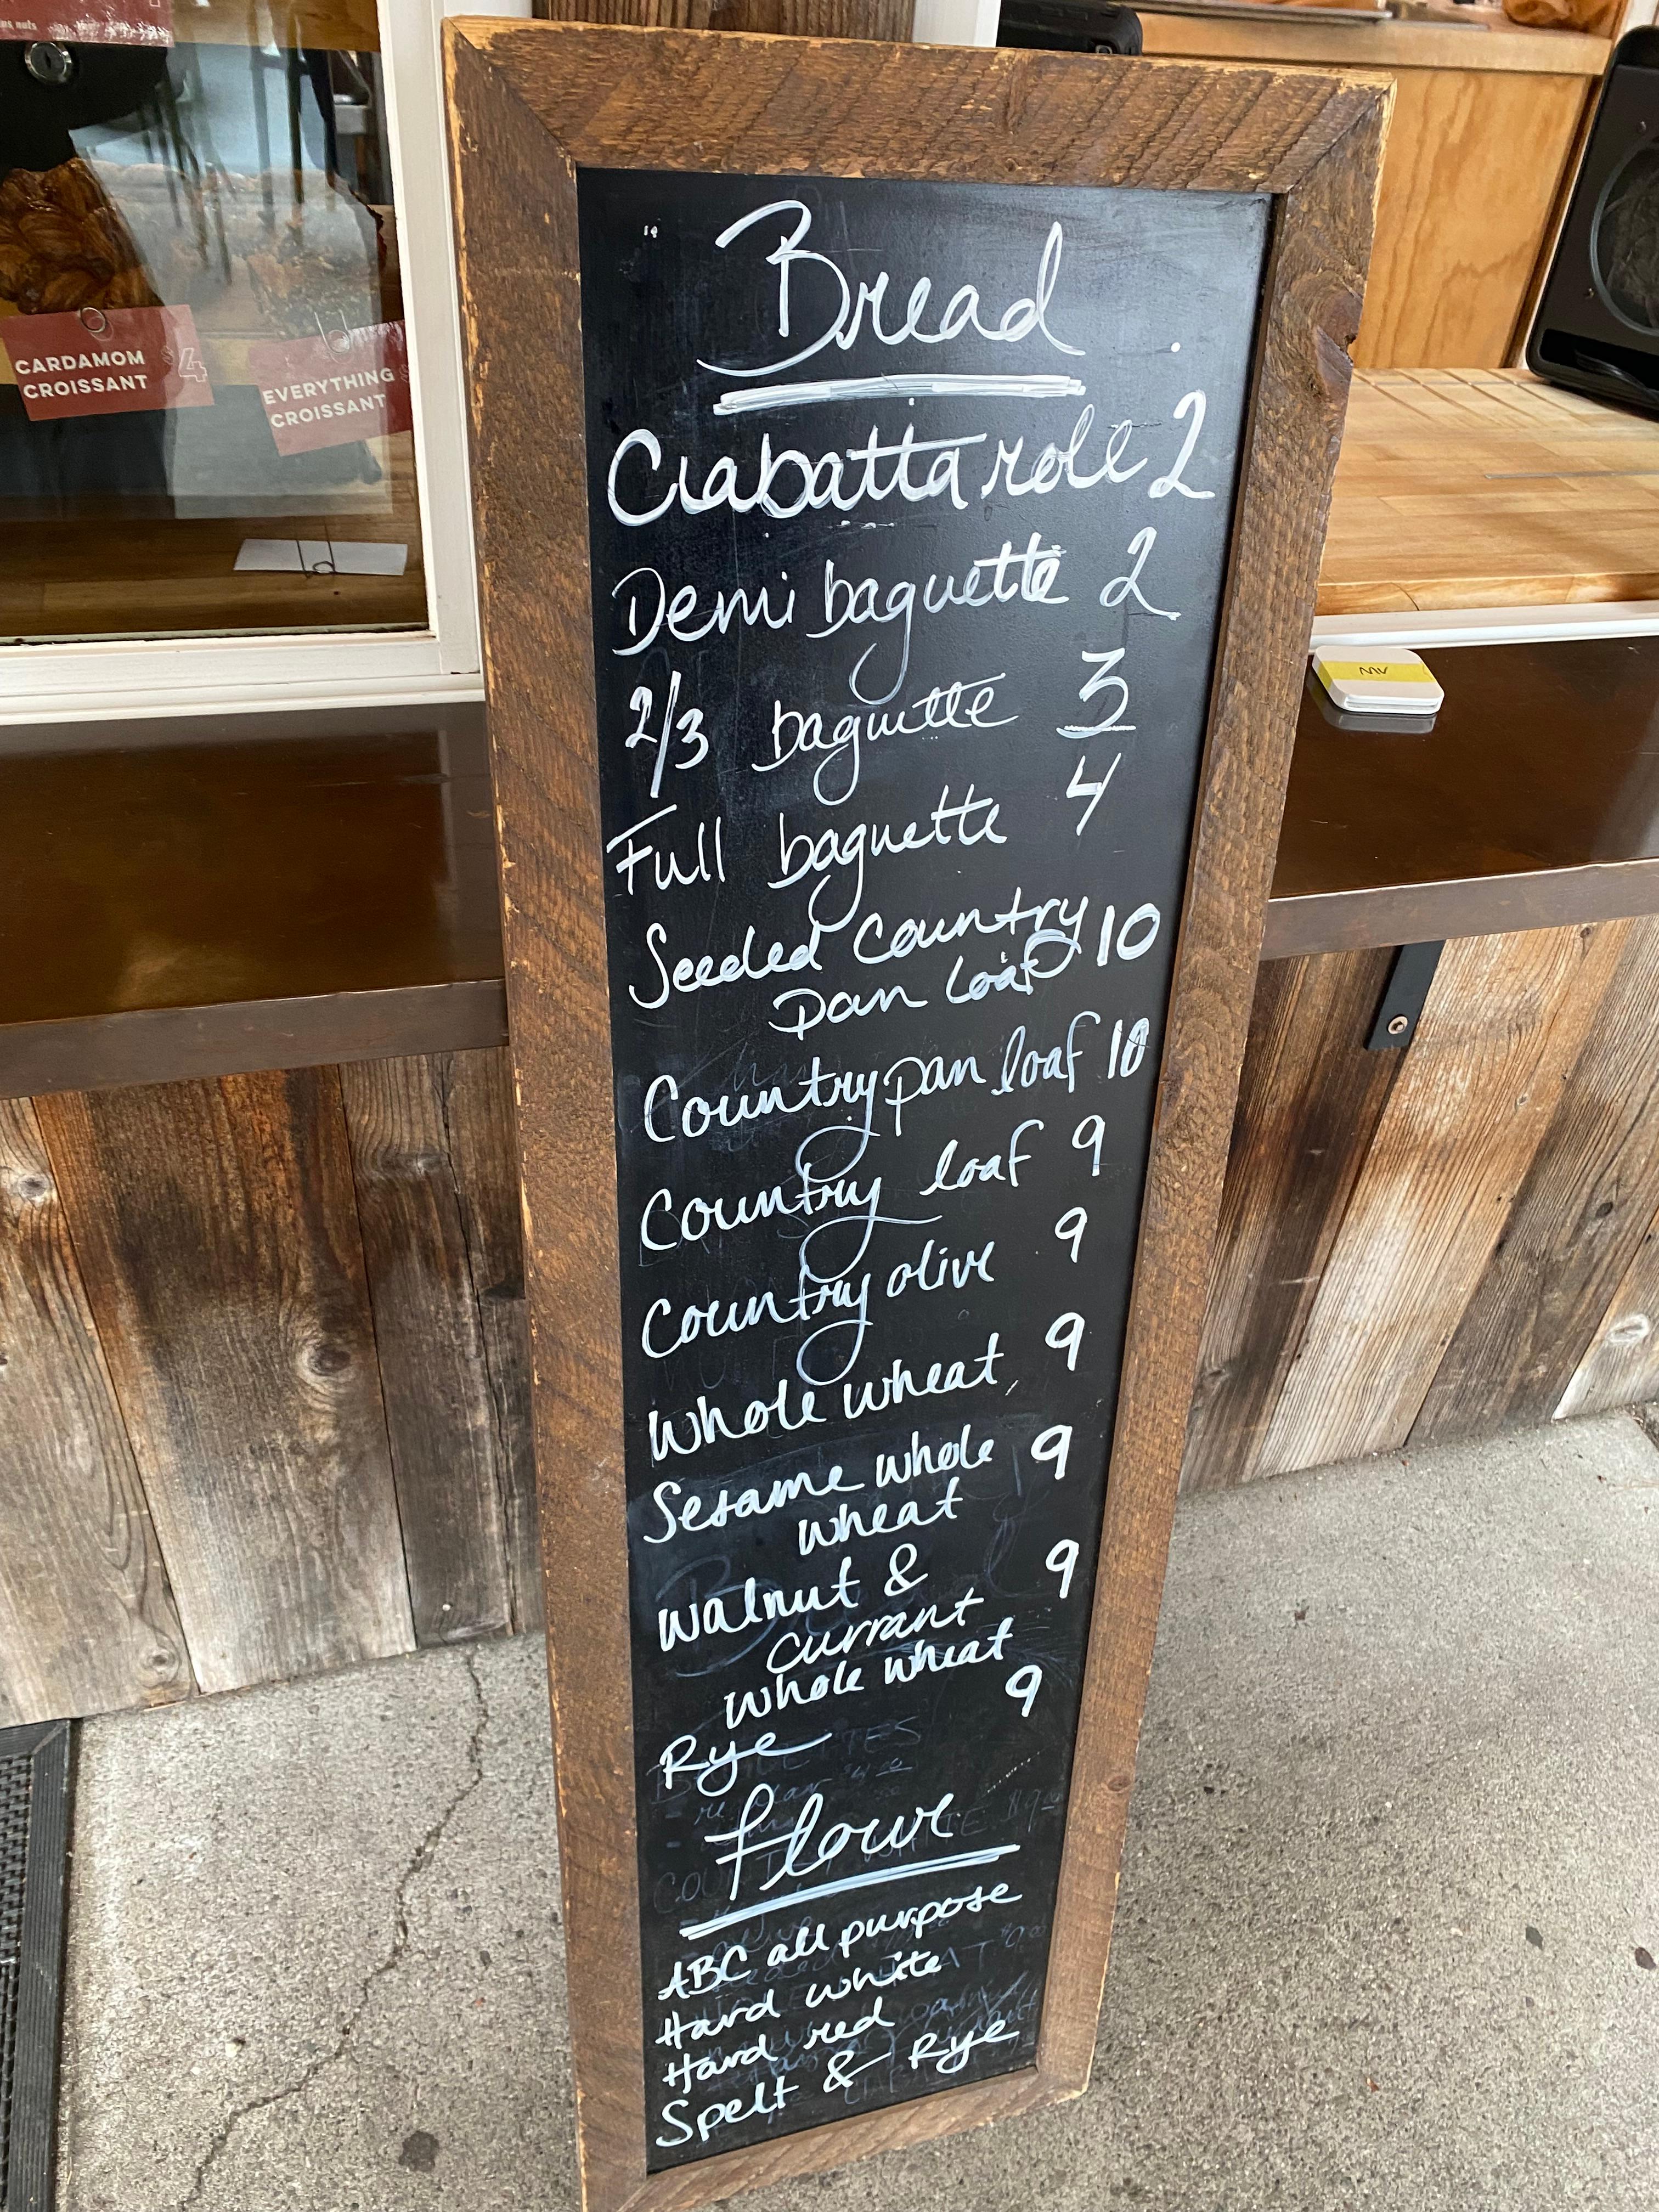 Bread
Ciabatta roll 2
Demi baguette 2
2/3 baguette 3
Full baguette 4
Seeded Country 10
pan loaf
Country pan loaf 10
Country loaf 9
Country olive 9
Whole wheat 9
Sesame whole 9
wheat
Walnut & 9
currant
whole wheat
Rye 9
Flour
ABC all purpose
Hard white
Hard red
Spelt & Rye
CARDAMOM $4
CROISSANT
EVERYTHING
CROISSANT
nuts